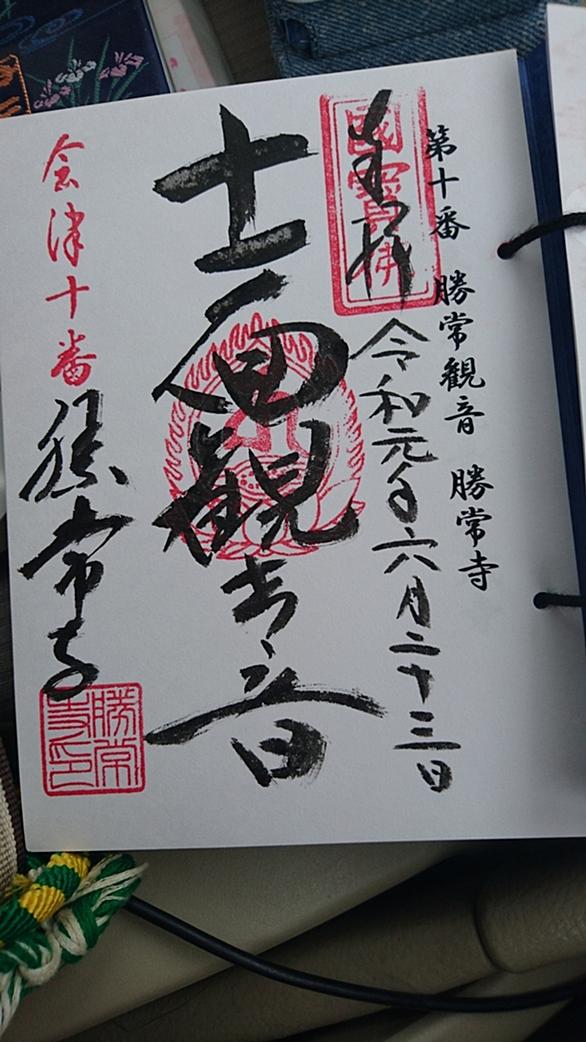 第十番 勝常観音 勝常寺
國寶佛
奉拝 令和元年六月二十三日
十一面観世音
会津十番
勝常寺
勝常寺印